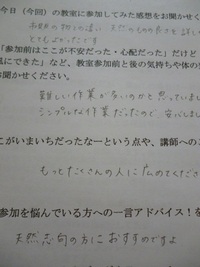 今日（今回）の教室に参加してみた感想をお聞かせく
とてもよかったです
「参加前はここが不安だった・心配だった」だけど
風にできた」など、教室参加前と後の気持ちや体の
お聞かせください。
難しい作業が多いのかと思っていまし
シンプルな作業だったので
こがいまいちだったなーという点や、講師への
もっとたくさんの人に広めてくださ
参加を悩んでいる方への一言アドバイス！を
天然志向の方におすすめですよ